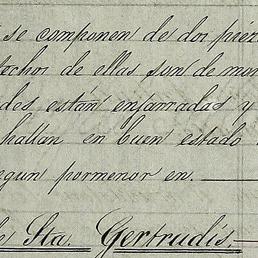 se componen de dos piez
techos de ellas son de mor
des están enjarradas y
hallan en buen estado
egun pormenor en.
de Sta. Gertrudis.